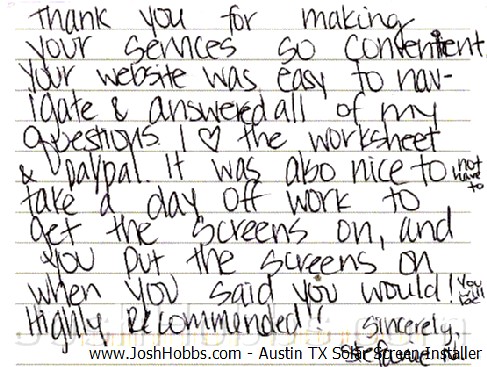 Thank you for making
your services so convenient.
Your website was easy to nav-
igate & answered all of my
questions. I ♡ the worksheet
& paypal. It was also nice to not have to
take a day off work to
get the screens on, and
you put the screens on
when you said you would!
Highly Recommended!! Sincerely,
Stefanie
www.JoshHobbs.com - Austin TX Solar Screen Installer